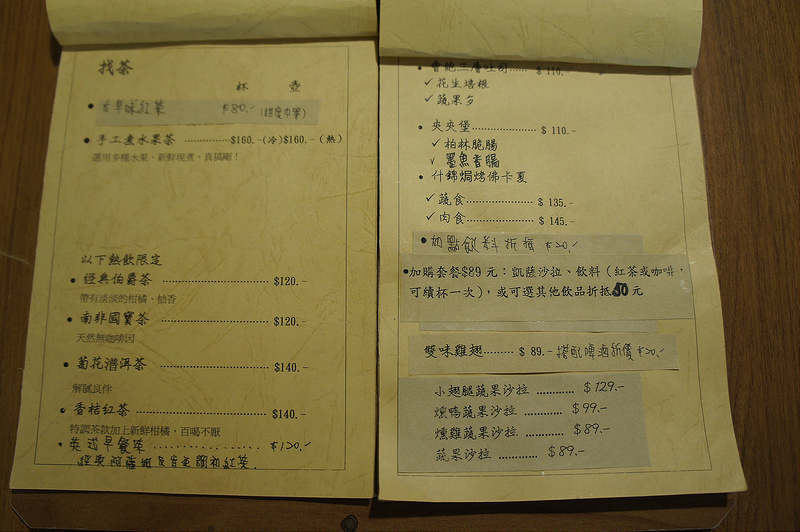 找茶
杯 壺
古早味紅茶 $80.-(甜度中等)
手工煮水果茶 ----------$160.-(冷)$160.-(熱)
選用多種水果，新鮮現煮，真搞剛！
以下熱飲限定
經典伯爵茶 ................ $120.-
帶有淡淡的柑橘、柚香
南非國寶茶 ................ $120.-
天然無咖啡因
菊花潽洱茶 ................ $140.-
解膩良伴
香桔紅茶 ................ $140.-
特調茶款加上新鮮柑橘，百喝不厭
英式早餐茶 ................ $120.-
經典阿薩姆及肯亞調和紅茶.
會飽三層吐司...... $ 110.
✓ 花生培根
✓ 蔬果多
夾夾堡................ $ 110.-
✓ 柏林脆腸
✓ 墨魚香腸
什錦焗烤佛卡夏
✓ 蔬食................ $ 135.-
✓ 肉食................ $ 145.-
加點飲料折抵 $20.-
加購套餐$89 元：凱薩沙拉、飲料（紅茶或咖啡，
可續杯一次），或可選其他飲品折抵50 元
雙味雞翅........ $ 89.-搭配啤酒折價$20.-
小翅腿蔬果沙拉 ............ $129.-
燻鴨蔬果沙拉 ............ $99.-
燻雞蔬果沙拉 ............ $89.-
蔬果沙拉 ............ $89.-